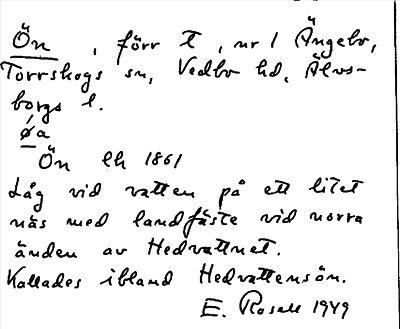 Ön, förr t, nr 1 Ängebo,
Torrskogs sn, Vedbo hd, Älvs-
borgs l.
øa
Ön lh 1861
Låg vid vatten på ett litet
näs med landfäste vid norra
änden av Hedvattnet.
Kallades ibland Hedvattensön.
E. Rosell 1949